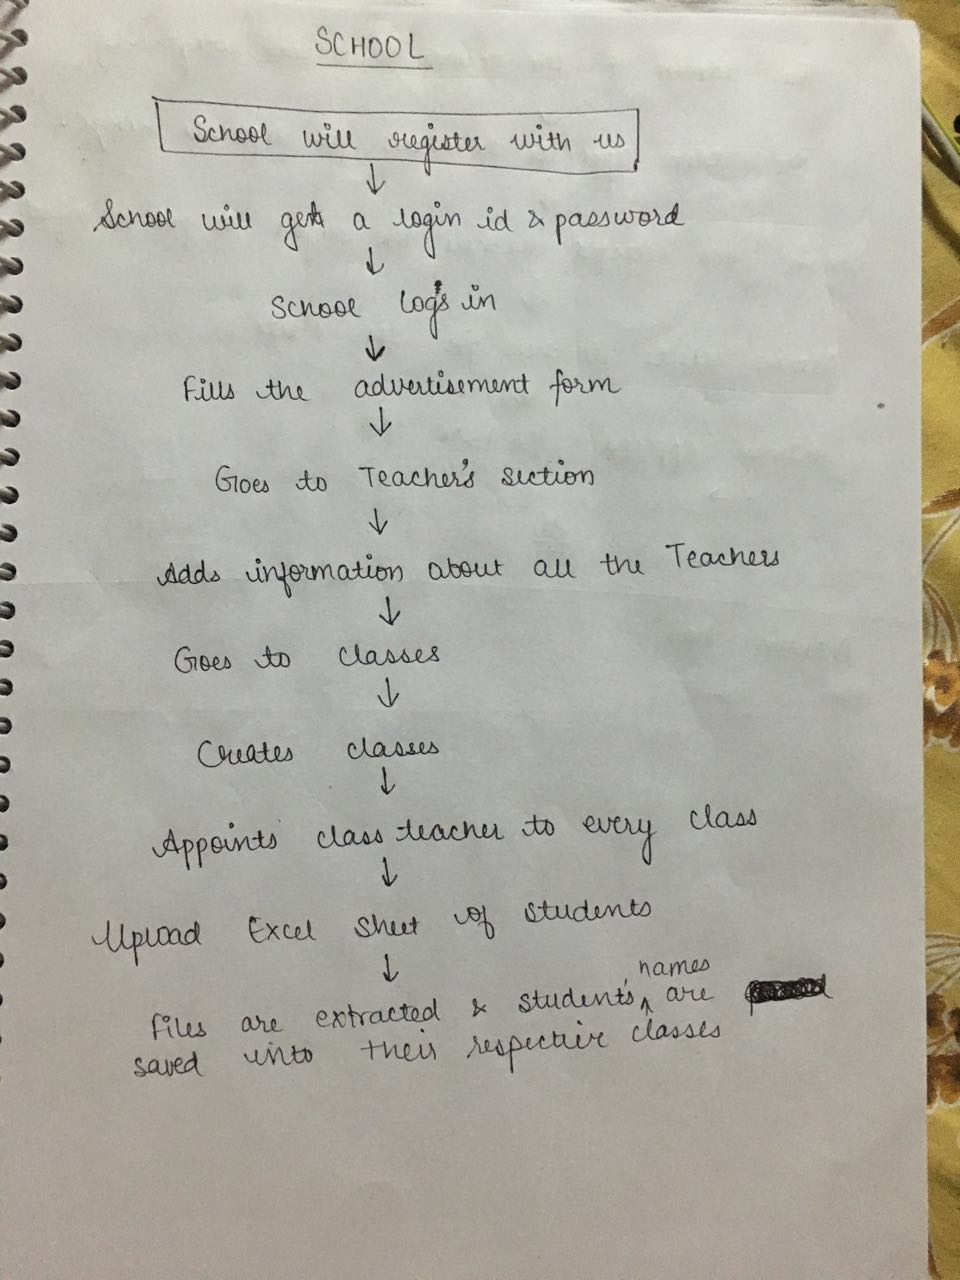 SCHOOL
School will register with us
↓
School will get a login id & password
↓
School logs in
↓
Fills the advertisement form
↓
Goes to Teacher's section
↓
Adds information about all the Teachers
↓
Goes to classes
↓
Creates classes
↓
Appoints class teacher to every class
↓
Upload Excel Sheet of students
↓
names
files are extracted & students' ^ are
saved into their respective classes